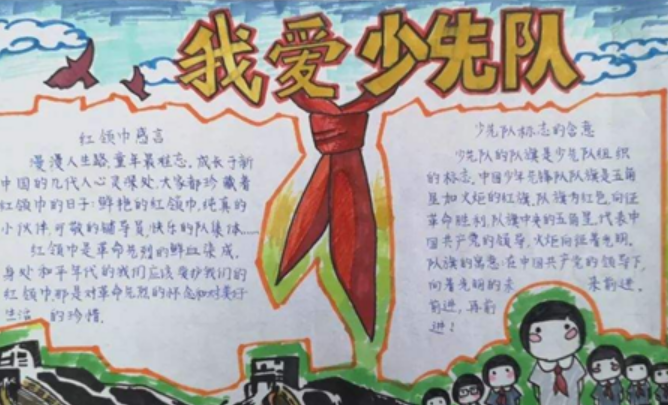 我爱少先队
红领巾感言
漫漫人生路,童年最难忘。成长于新
中国的几代人心灵深处,大家都珍藏着
红领巾的日子:鲜艳的红领巾,纯真的
小伙伴,可敬的辅导员,快乐的队集体……
红领巾是革命先烈的鲜血染成,
身处和平年代的我们应该爱护我们的
红领巾,那是对革命先烈的怀念和对美好
生活 的珍惜.
少先队标志的含意
少先队的队旗是少先队组织
的标志,中国少年先锋队队旗是五角
星加火炬的红旗,队旗为红色,向征
革命胜利,队旗中央的五角星,代表中
国共产党的领导,火炬向征着光明。
队旗的寓意:在中国共产党的领导下,
向着光明的未 来前进。
前进,再前
进!